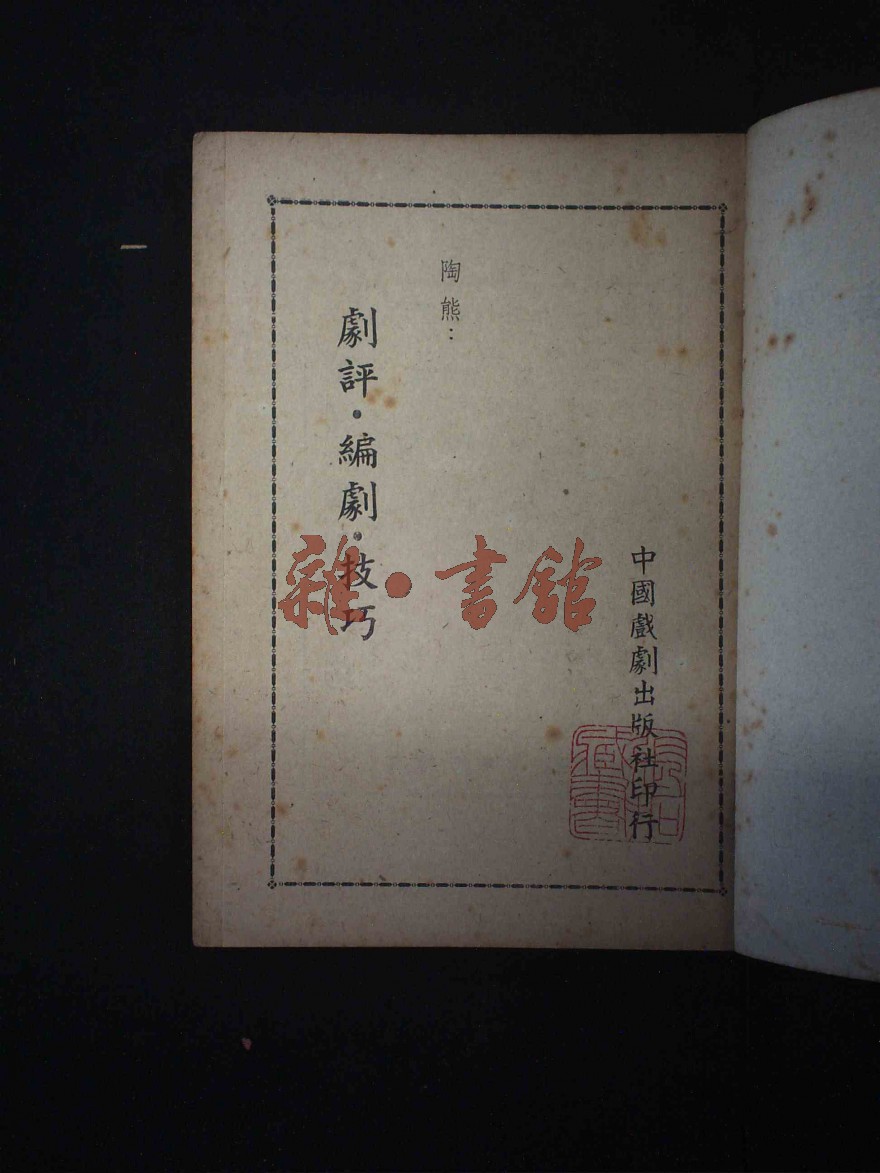 中國戲劇出版社印行
陶熊：
劇評·編劇·技巧
雜·書館